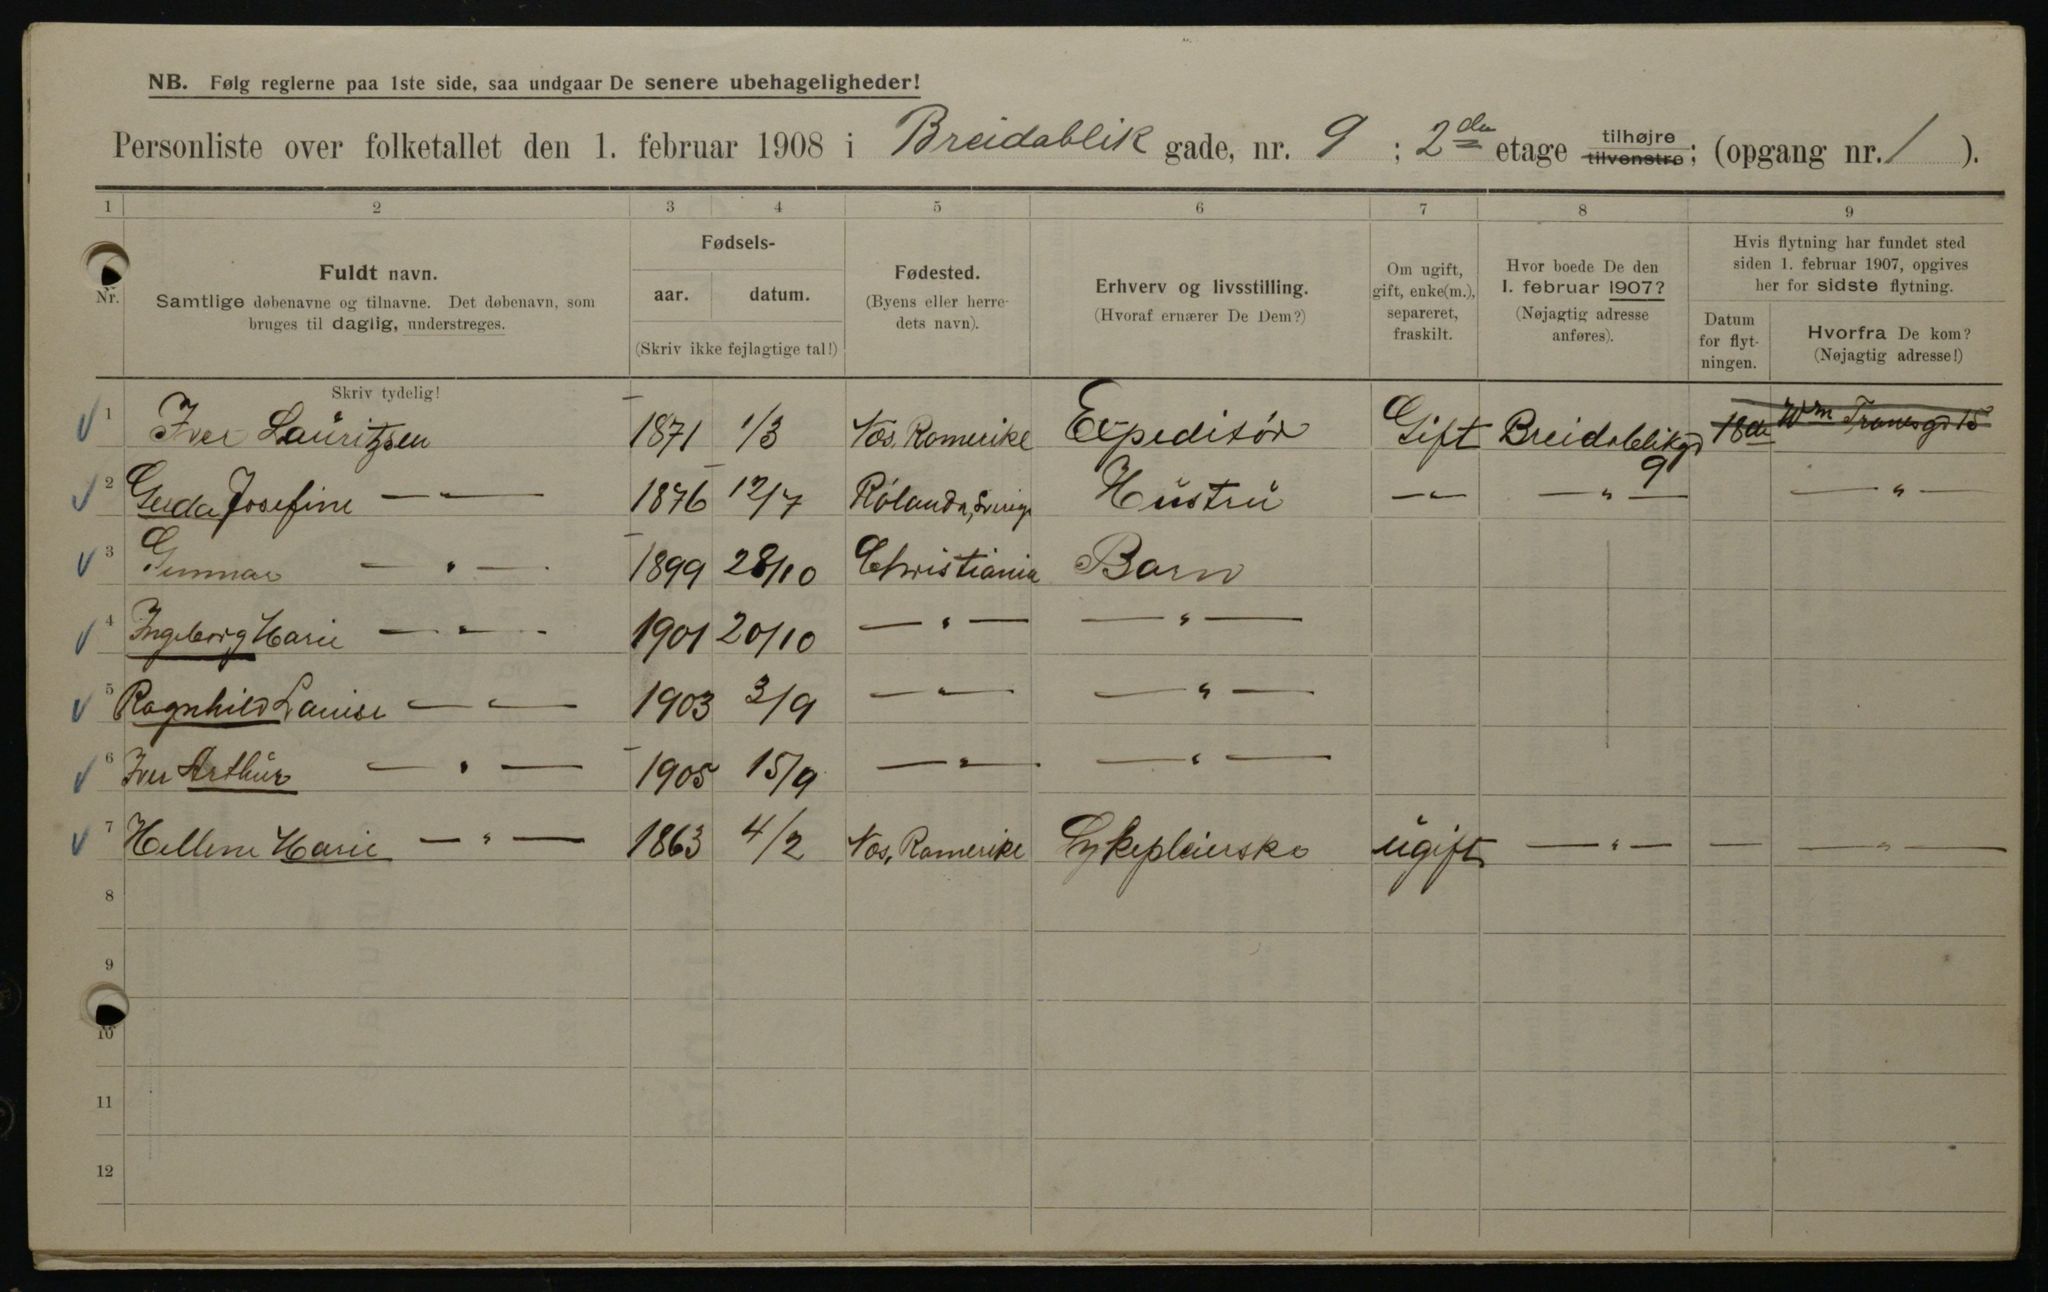 NB. Følg reglerne paa 1ste side, saa undgaar De senere ubehageligheder!
Personliste over folketallet den 1. februar 1908 i Breidablik gade, nr. 9 ; 2den etage tilhøjre tilvenstre; (opgang nr. 1 ).
1 2 3 4 5 6 7 8 9
Nr.
Fuldt navn.
Samtlige døbenavne og tilnavne. Det døbenavn, som
bruges til daglig, understreges.
Skriv tydelig!
Fødsels-
aar. datum.
(Skriv ikke fejlagtige tal!)
Fødested.
(Byens eller herre-
dets navn).
Erhverv og livsstilling.
(Hvoraf ernærer De Dem?)
Om ugift,
gift, enke(m.),
separeret,
fraskilt.
Hvor boede De den
1. februar 1907?
(Nøjagtig adresse
anføres).
Hvis flytning har fundet sted
siden 1. februar 1907, opgives
her for sidste flytning.
Datum
for flyt-
ningen.
Hvorfra De kom?
(Nøjagtig adresse!)
1 Iver Lauritzsen 1871 1/3 Næs, Romerike Expeditør Gift Breidablikgd 9 18de Wm Tranesgd 15
2 Gerda Josefine — " — 1876 12/7 Rölanda, Sverige Hustru — " — — " — — " —
3 Gunnar — " — 1899 28/10 Christiania Barn
4 Ingeborg Marie — " — 1901 20/10 — " — — " —
5 Ragnhild Louise — " — 1903 3/9 — " — — " —
6 Iver Arthur — " — 1905 15/9 — " — — " —
7 Hellene Marie — " — 1863 4/2 Næs, Romerike Sykepleierske ugift — " — — — " —
8
9
10
11
12